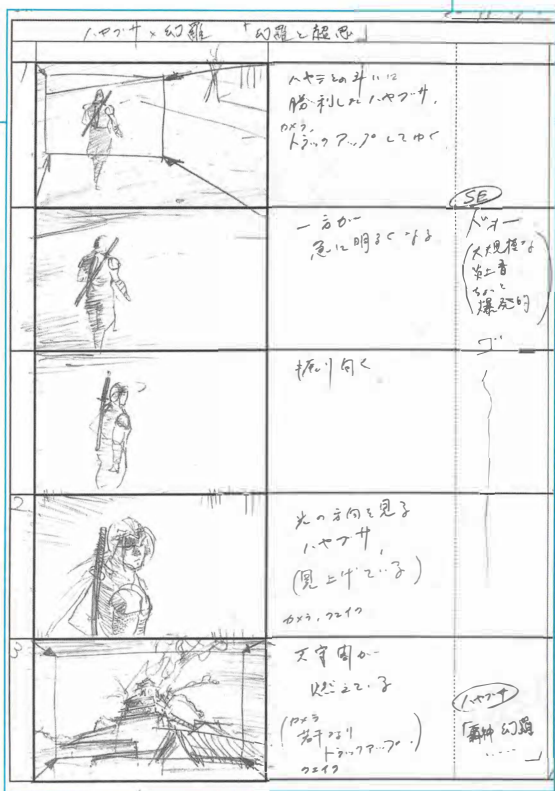 ハヤブサ×幻羅 「幻羅と超忍」
1
ハヤテとの斗いに
勝利したハヤブサ、
カメラ、
トラックアップしてゆく
SE
一方が
急に明るくなる
ドオー
(大規模な
炎上音
ちょっと
爆発的)
ゴ
振り向く
2
光の方向を見る
ハヤブサ、
(見上げている)
カメラ、フェイク
3
天守閣が
燃えている
(カメラ
若干つまり
トラックアップ)
フェイク
ハヤブサ
「幻羅
……」